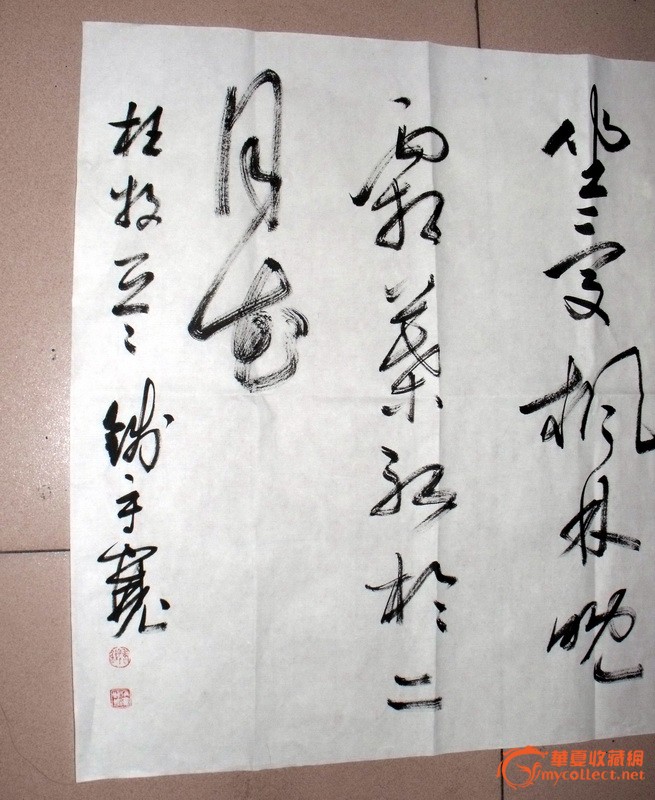 坐爱枫林晚
霜葉红於二
月花
杜牧
華夏收藏網
mycollect.net